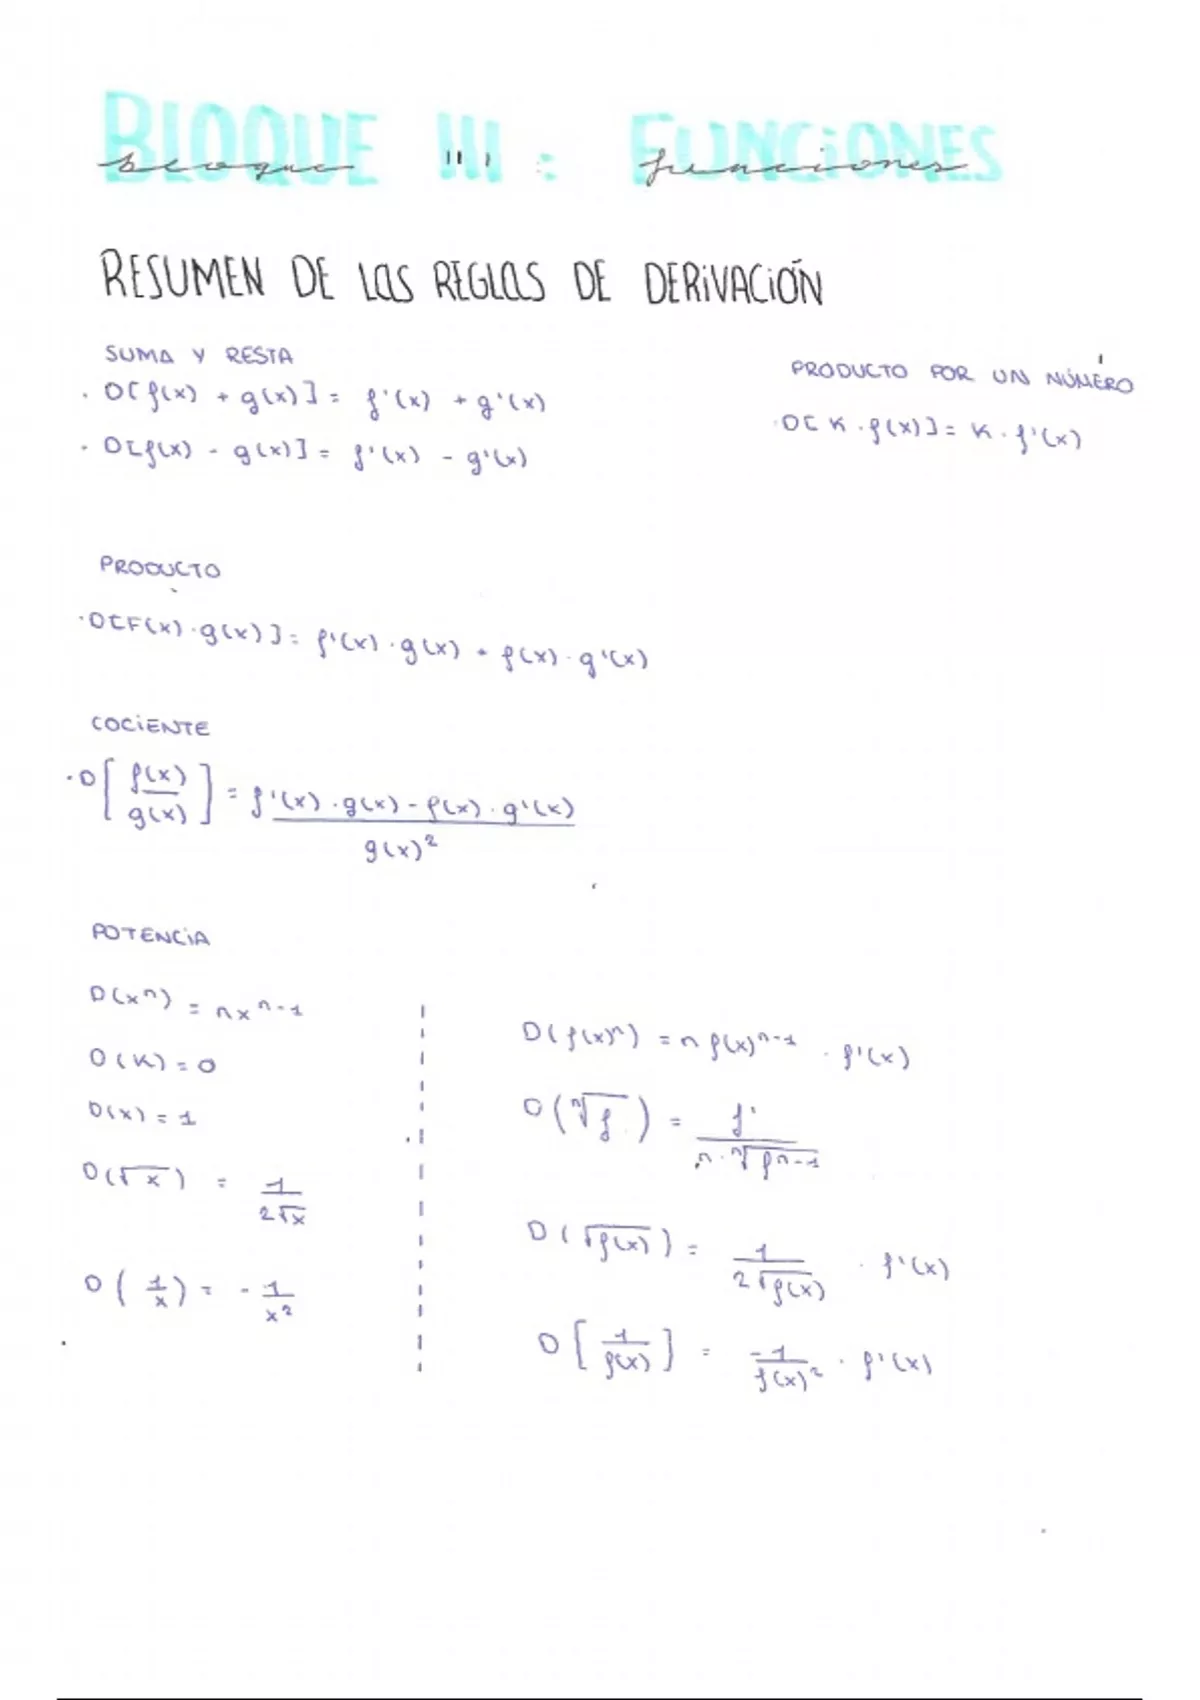 BLOQUE III : FUNCiONES
bloque III : funciones
RESUMEN DE LAS REGLAS DE DERiVACiÓN
SUMA Y RESTA
· D[f(x) + g(x)] = f'(x) + g'(x)
· D[f(x) - g(x)] = f'(x) - g'(x)
PRODUCTO POR UN NÚMERO
· D[K · f(x)] = K · f'(x)
PRODUCTO
· D[F(x) · g(x)] = f'(x) · g(x) + f(x) · g'(x)
COCiENTE
· D[f(x)/g(x)] = f'(x) · g(x) - f(x) · g'(x) / g(x)²
POTENCiA
D(xⁿ) = nxⁿ⁻¹
D(K) = 0
D(x) = 1
D(√x) = 1/2√x
D(1/x) = - 1/x²
D(f(x)ⁿ) = n f(x)ⁿ⁻¹ · f'(x)
D(ⁿ√f) = f'/n · ⁿ√fⁿ⁻¹
D(√f(x)) = 1/2√f(x) · f'(x)
D[1/f(x)] = -1/f(x)² · f'(x)